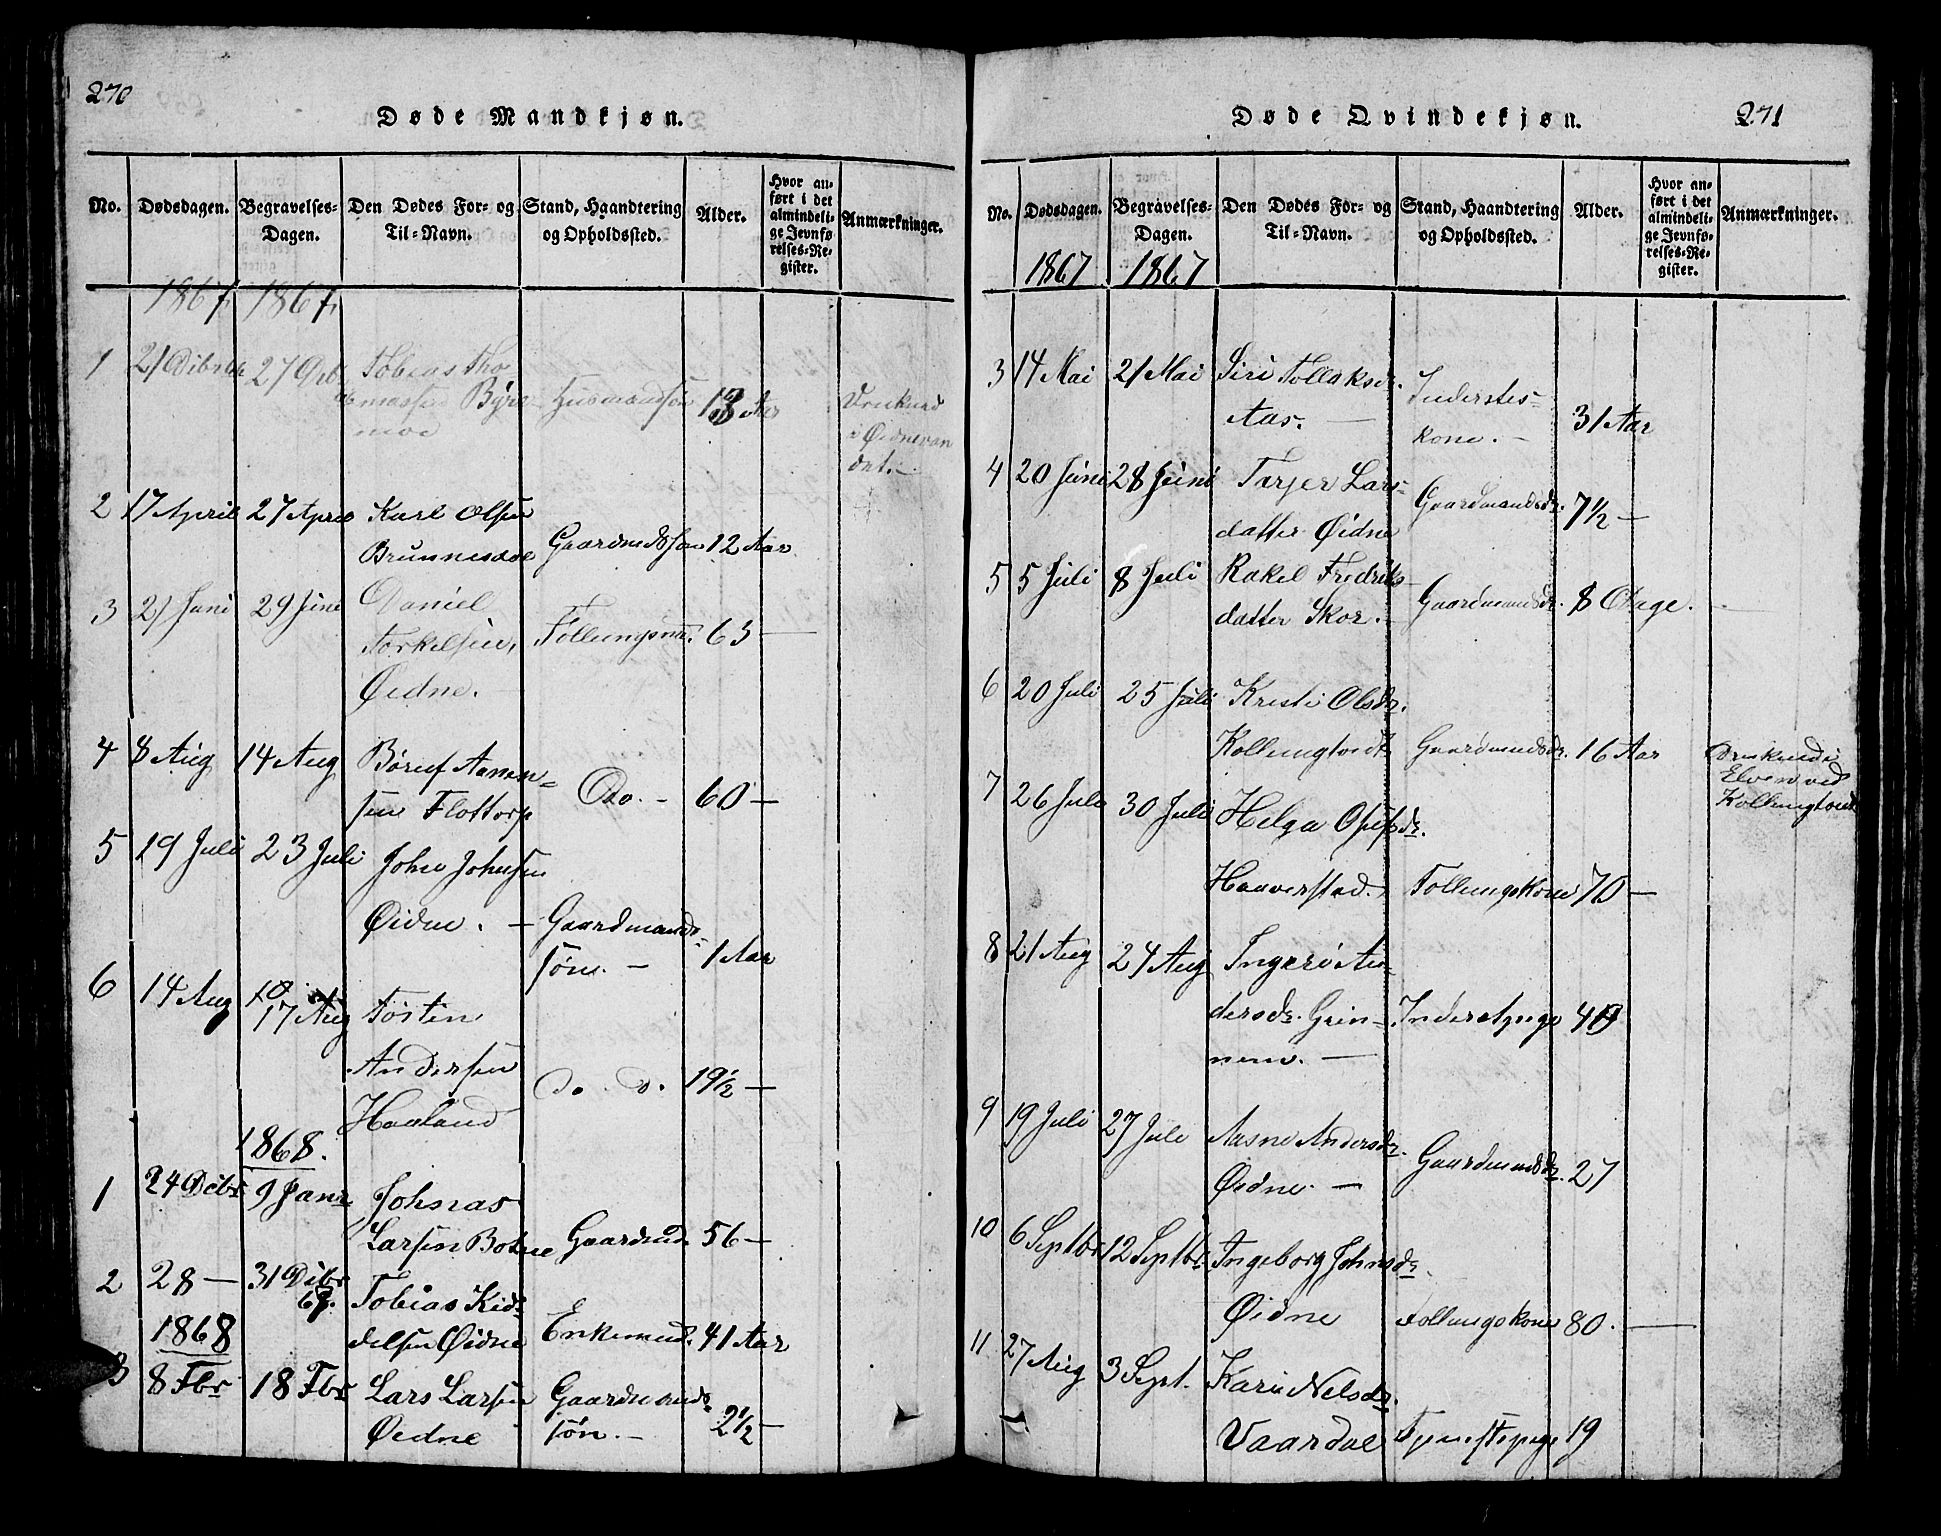 270
Døde Mandkjøn.
No. Dødsdagen. Begravelses-Dagen. Den Dødes For- og Til-Navn. Stand, Haandtering og Opholdssted. Alder. Hvor anført i det almindelige Jevnførelses-Register. Anmærkninger.
1867, 1867,
1 21 Dcbr 27 Tobias Tho
massen Byre Huusmandsøn 13 Aar Druknad
moe i Øidnevan
det.
2 17 April 27 April Karl Olsen
Brunnesdal Gaardmdssøn 12 Aar
3 21 Juni 29 Juni Daniel
Torkelsen, Føllungsm. 63 —
Øidne.
4 8 Aug 14 Aug Børuf Aanen-
sen Flottorp Do. - 60 —
5 19 Juli 23 Juli John Johnsen
Øidne. — Gaardmands-
søn. — 1 Aar
6 14 Aug 17 Aug Tosten
Andersen Do. do. 19½ —
Haaland
1868.
1 24 Dcbr 9 Janr Johnas
Larsen Gaardmd. 56 —
2 28 — 31 Dcbr
67. Tobias Kid-
delsen Øidne Enkemnd. 41 Aar
1868
3 8 Fbr 18 Fbr Lars Larsen Gaardmands-
Øidne søn. — 2½ —
271
Døde Qvindekjøn.
No. Dødsdagen. Begravelses-Dagen. Den Dødes For- og Til-Navn. Stand, Haandtering og Opholdssted. Alder. Hvor anført i det almindelige Jevnførelses-Register. Anmærkninger.
1867 1867
3 14 Mai 21 Mai Siri Tollaksdr. Inderstes-
Aas. — kone. — 31 Aar
4 20 Juni 28 Juni Tarjer Lars-
datter Øidne Gaardmandsdr. 7½ —
5 5 Juli 8 Juli Rakel Fredriks-
datter Skor. — Gaardmandsdr. 8 Dage.
6 20 Juli 25 Juli Kristi Olsdr.
Kollungtveit Gaardmandsdr. 16 Aar Druknede i
Elven ved
Kollungtveit
7 26 Juli 30 Juli Helga
Haaverstad. Føllungskone 70 —
8 21 Aug 24 Aug Ingerø An-
dersdr. Grin- Inderstpige 40
nem. —
9 19 Juli 27 Juli Aasne Andersdr.
Øidne. — Gaardmandsdr. 27
10 6 Septbr 12 Septbr Ingeborg Johnsdr.
Øidne Føllungskone 80. —
11 27 Aug 3 Sept. Kari Nelsdr.
Vaardal Tjenestepige 19